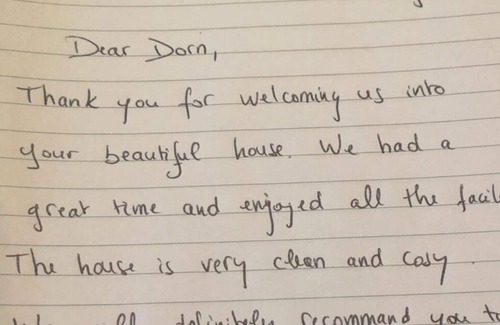 Dear Dorn,
Thank you for welcoming us into
your beautiful house. We had a
great time and enjoyed all the facil
The house is very clean and cosy.
definitely recommand you to